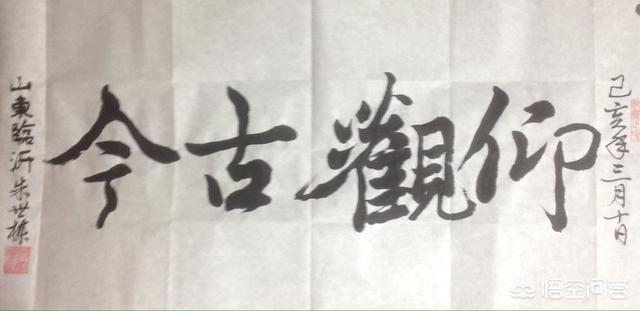 己亥年三月十日
仰觀古今
山東臨沂朱世
悟空问答